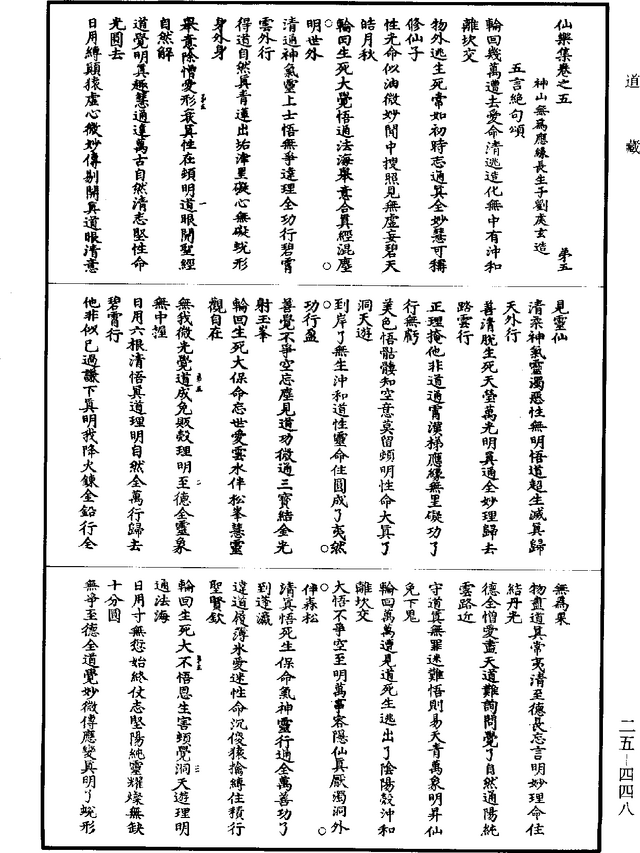 道藏
仙樂集卷之五 第五
神山無為應緣長生子劉處玄造
五言絕句頌
輪回幾萬遭去愛命清逃造化無中有沖和
離坎交
物外逃生死常如初時志通真全妙慧可稱
修仙子
性光命似油微妙閒中搜照見無虛妄碧天
皓月秋
輪回生死大覺悟通法海舉意合真經混塵
明世外
清通神氣靈上士悟無爭達理全功行碧霄
雲外行
得道自然真青蓮出垢津里礙心無礙蛻形
身外身
舉意除憎愛形衰真性在頓明道眼開聖經
自然解
道覺明真趣慧通達萬古自然清志堅性命
光圓去
日用縛顛猿虛心微妙傳剔開真道眼清意
見靈仙
清柔神氣靈濁惡性無明悟道超生滅真歸
天外行
善清脫生死天瑩萬光明真通全妙理歸去
路雲行
正理掩他非道通霄漢梯應緣無里礙功了
行無虧
美色悟骷髏知空意莫留頓明性命大真了
洞天遊
到岸了無生沖和道性靈命住圓成了夷然
功行盈
善覺不爭空忘塵見道功微通三寶結金光
射玉峯
輪回生死大保命忘世愛雲水伴松峯慧靈
觀自在
無我微光覺道成免販殼理明至德全靈象
無中捏
日用六根清悟真道理明自然全萬行歸去
碧霄行
他非似己過謙下真明我降火鍊全鉛行全
無為果
物盡道真常夷清至德長忘言明妙理命住
結丹光
德全憎愛盡天道難詢問覺了自然通陽純
雲路近
守道真無罪迷難悟則易天青萬象明昇仙
免下鬼
輪回萬萬遭見道死生逃出了陰陽殼沖和
離坎交
大悟不爭空至明萬事容隱仙真厭濁洞外
伴森松
清真悟死生保命氣神靈行通全萬善功了
到蓬瀛
達道履薄冰愛迷性命沉俊猿擒縛住積行
聖賢欽
輪回生死大不悟恩生害頓覺洞天遊理明
通法海
日用寸無愆始終仗志堅陽純靈耀燦無缺
十分圓
無爭至德全道覺妙微傳應變真明了蛻形
二五－四四八